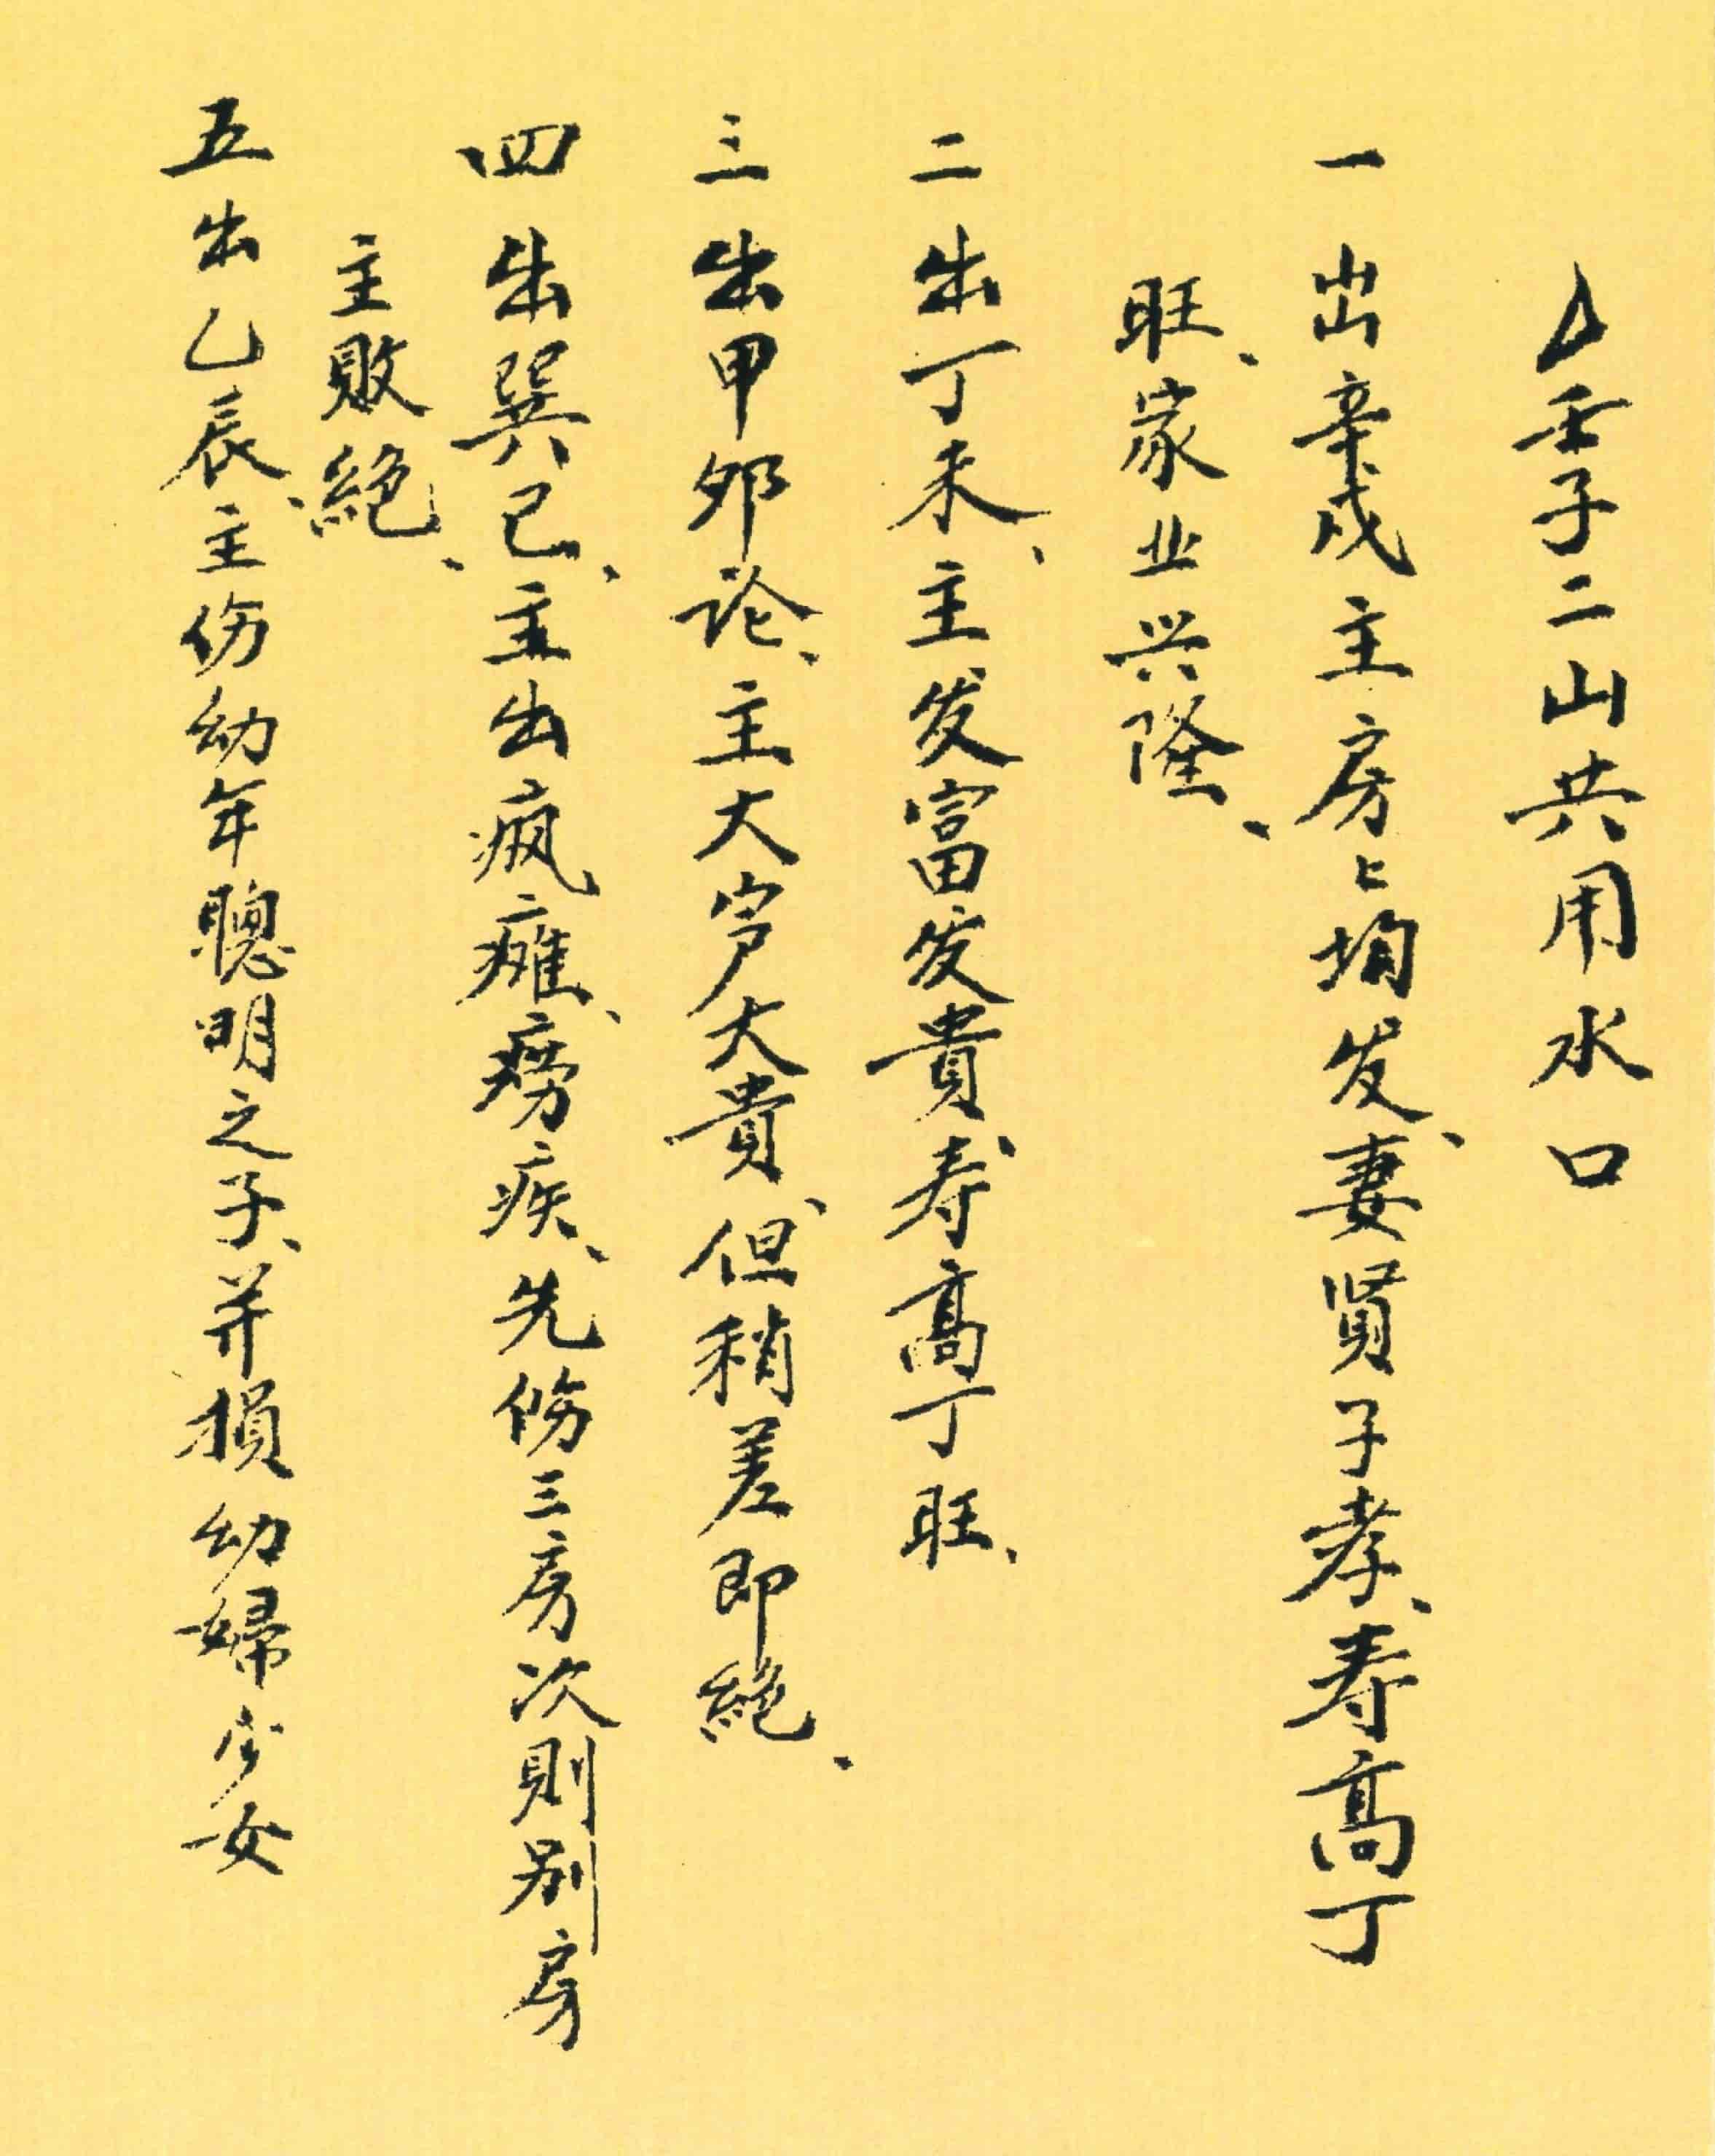 △壬子二山共用水口
一出辛戌主房々均发、妻贤子孝、寿高丁
旺、家业兴隆、
二出丁未、主发富发貴、寿高丁旺、
三出甲卯论、主大富大貴、但稍差即絶、
四出巽巳、主出疯瘫、痨疾、先伤三房次則别房
主敗絶、
五出乙辰、主伤幼年聰明之子、并損幼婦少女